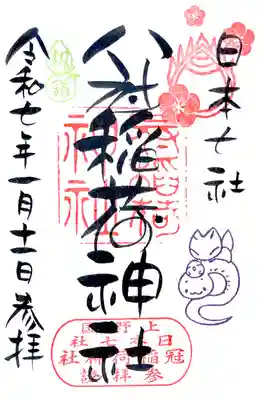 日本七社
冠稲荷神社
令和七年一月十一日参拝
上野国
日本七社
冠稲荷神社